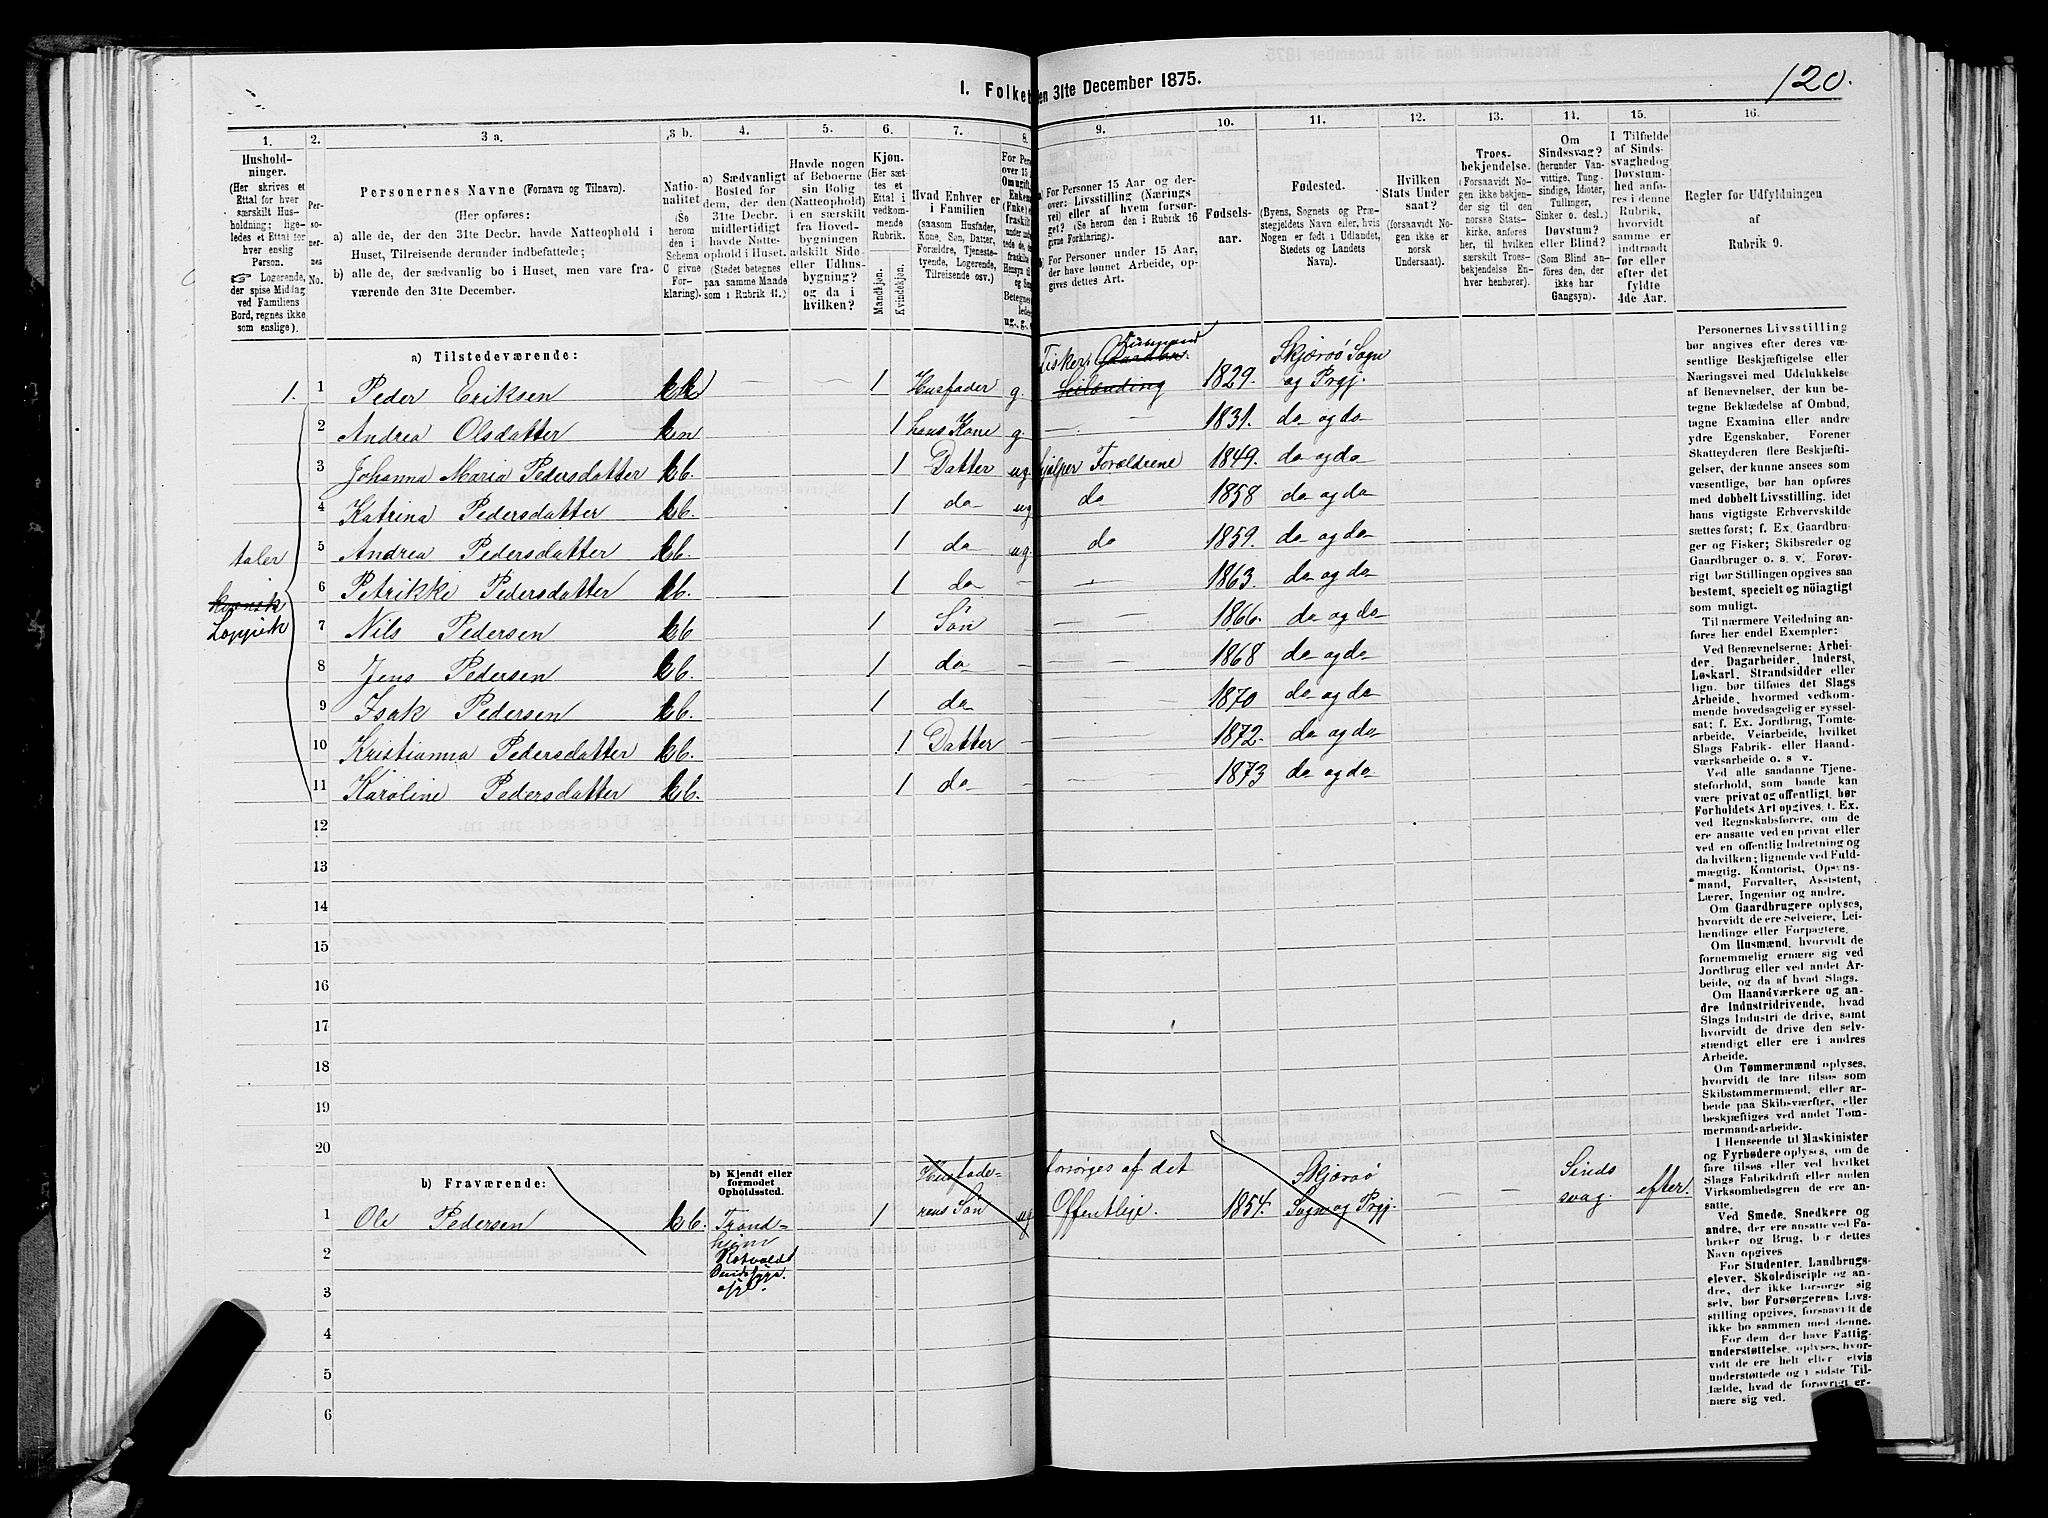 120.
1. Folket
en 31te December 1875.
1. 2. 3 a. 3 b. 4. 5. 6. 7. 8. 9. 10. 11. 12. 13. 14. 15. 16.
Husholdninger.
(Her skrives et
Ettal for hver
særskilt Husholdning;
ligeledes et Ettal for
hver enslig
Person.
☞ Logerende,
der spise Middag
ved Familiens
Bord, regnes ikke
som enslige).
Personernes No.
Personernes Navne (Fornavn og Tilnavn).
(Her opføres:
a) alle de, der den 31te Decbr. havde Natteophold i
Huset, Tilreisende derunder indbefattede;
b) alle de, der sædvanlig bo i Huset, men vare fraværende
den 31te December.
Nationalitet
(Se
herom
den i
Schema
C givne
Forklaring).
a) Sædvanligt
Bosted for
dem, der den
31te Decbr.
midlertidigt
havde Natteophold
i Huset.
(Stedet betegnes
paa samme Maade
som i Rubrik 11.)
Havde nogen
af Beboerne
sin Bolig
(Natteophold)
i en særskilt
fra Hovedbygningen
adskilt Side- eller Udhusbygning?
og da i
hvilken?
Kjøn.
(Her sættes
et Ettal i
vedkommende
Rubrik.
Mandkjøn.
Kvindekjøn.
Hvad Enhver er
i Familien
(saasom Husfader,
Kone, Søn, Datter,
Forældre, Tjenestetyende,
Logerende,
Tilreisende osv.)
a) For Personer 15 Aar og derover:
Livsstilling (Næringsvei)
eller af hvem forsørget?
(Se herom den i Rubrik 16
givne Forklaring).
b) For Personer under 15 Aar,
der have lønnet Arbeide, opgives
dettes Art.
Fødselsaar.
Fødested.
(Byens, Sognets og Præstegjeldets
Navn eller, hvis
Nogen er født i Udlandet,
Stedets og Landets
Navn).
Hvilken
Stats Undersaat?
(forsaavidt Nogen
ikke er
norsk
Undersaat).
Troesbekjendelse.
(Forsaavidt Nogen
ikke bekjender
sig til den
norske Statskirke,
anføres
her, til hvilken
særskilt Troesbekjendelse
Enhver
henhører).
Om
Sindssvag?
(herunder Vanvittige,
Tungsindige, Idioter,
Tullinger,
Sinker o. desl.)
Døvstum?
eller Blind?
(Som Blind anføres
den, der
ikke har
Gangsyn).
I Tilfælde
af Sindssvaghed og
Døvstumhed
anføres
i denne
Rubrik,
hvorvidt
samme er
indtraadt
før eller
efter det
fyldte
4de Aar.
Regler for Udfyldningen
af
Rubrik 9.
a) Tilstedeværende:
1. 1 Peder Eriksen 1 Husfader g. Fisker, Husmand 1829. Skjærvø Sogn og Prgj.
2 Andrea Olsdatter 1 hans Kone g. 1831. do og do
3 Johanna Maria Pedersdatter 1 Datter ug. hjelper Forældrene 1849. do og do
4 Katrina Pedersdatter 1 do ug do 1858 do og do
5 Andrea Pedersdatter 1 do ug. do 1859. do og do
taler
6 Petrikke Pedersdatter 1 do 1863. do og do
kvænsk
Lappisk
7 Nils Pedersen 1 Søn 1866. do og do
8 Jens Pedersen 1 do 1868 do og do
9 Isak Pedersen 1 do 1870 do og do
10 Kristianna Pedersdatter 1 Datter 1872. do og do
11 Karoline Pedersdatter 1 do 1873 do og do
12
13
14
15
16
17
18
19
20
b) Fraværende:
b) Kjendt eller
formodet
Opholdssted.
1 Ole Pedersen Trondhjem 1 Husfaderens Søn ug forsørges af det Offentlige. 1854. Skjærvø Sogn og Prgj. Sindssvag. efter.
2
3
4
5
6
Personernes Livsstilling
bør angives efter deres væsentlige
Beskjæftigelse eller
Næringsvei med Udelukkelse
af Benævnelser, der kun betegne
Beklædelse af Ombud,
tagne Examina eller andre
ydre Egenskaber. Forener
Skatteyderen flere Beskjæftigelser,
der kunne ansees som
væsentlige, bør han opføres
med dobbelt Livsstilling, idet
hans vigtigste Erhvervskilde
sættes først; f. Ex. Gaardbruger
og Fisker; Skibsreder og
Gaardbruger o. s. v. Forøvrigt
bør Stillingen opgives saa
bestemt, specielt og nøiagtigt
som muligt.
Til nærmere Veiledning anføres
her endel Exempler:
Ved Benævnelserne: Arbeider,
Dagarbeider, Inderst,
Løskarl, Strandsidder eller
lign. bør tilføies det Slags
Arbeide, hvormed vedkommende
hovedsagelig er sysselsat;
f. Ex. Jordbrug, Tomtearbeide,
Veiarbeide, hvilket
Slags Fabrik- eller Haandværksarbeide
o. s v.
Ved alle saadanne Tjenesteforhold,
som baade kan
være privat og offentligt, bør
Forholdets Art opgives, f. Ex.
ved Regnskabsførere, om de
ere ansatte ved en privat eller
ved en offentlig Indretning og
da hvilken; lignende ved Fuldmægtig,
Kontorist, Opsynsmand,
Forvalter, Assistent,
Lærer, Ingeniør og andre.
Om Gaardbrugere oplyses,
hvorvidt de ere Selveiere, Leilændinge
eller Forpagtere.
Om Husmænd, hvorvidt de
fornemmelig ernære sig ved
Jordbrug eller ved andet Arbeide,
og da af hvad Slags.
Om Haandværkere og andre
Industridrivende, hvad
Slags Industri de drive, samt
hvorvidt de drive den selvstændigt
eller ere i andres
Arbeide.
Om Tømmermænd oplyses,
hvorvidt de fare tilsøs som
Skibstømmermænd, eller arbeide
paa Skibsværfter, eller
beskjæftiges ved andet Tømmermandsarbeide.
I Henseende til Maskinister
og Fyrbødere oplyses, om de
fare tilsøs eller ved hvilket
Slags Fabrikdrift eller anden
Virksomhedsgren de ere ansatte.
Ved Smede, Snedkere og
andre, der ere ansatte ved Fabriker
og Brug, bør dettes
Navn opgives
For Studenter, Landbrugselever,
Skoledisciple og andre,
der ikke forsørge sig
selv, bør Forsørgerens Livsstilling
opgives, forsaavidt de
ikke bo sammen med denne.
For dem, der have Fattigunderstøttelse,
oplyses, hvorvidt
de ere helt eller delvis
understøttede og i sidste Tilfælde,
hvad de forøvrigt ernære
sig ved.